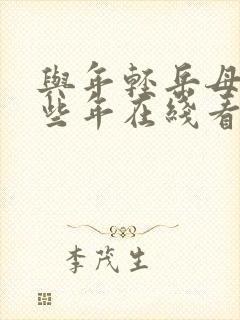 與年輕岳母
些年在綫看
李茂生